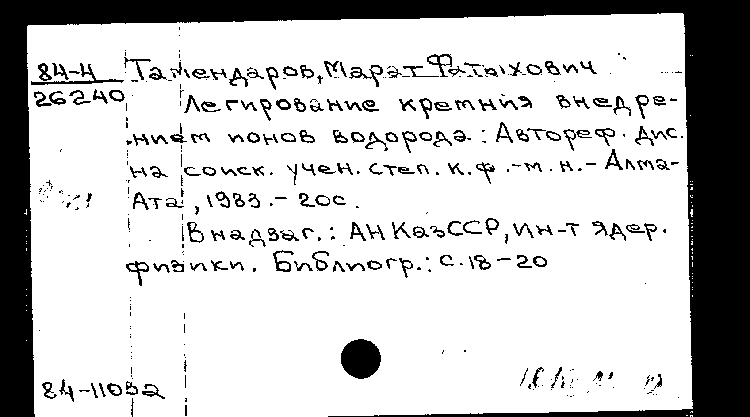 84-4 Тамендаров, Марат Фатыхович
26240 Легирование кремния внедре-
нием ионов водорода.: Автореф. дис.
на соиск. учен. степ. к.ф.-м.н.- Алма-
Ата, 1983.- 20с.
В надзаг.: АН КазССР, Ин-т ядер.
физики. Библиогр.: с.18-20
84-11052